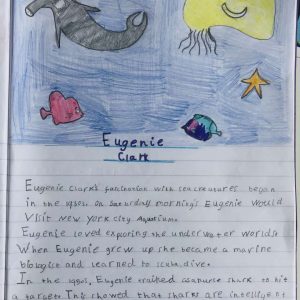 Eugenie
Clark
Eugenie Clark's fascination with sea creatures began
in the 1920s. On Saturday morning's Eugenie would
visit New York city Aquarium.
Eugenie loved exploring the underwater worlds
When Eugenie grew up she became a marine
biologist and learned to scuba dive.
In the 1950s, Eugenie trained a nurse shark to hit
a target. This showed that sharks are intelligent